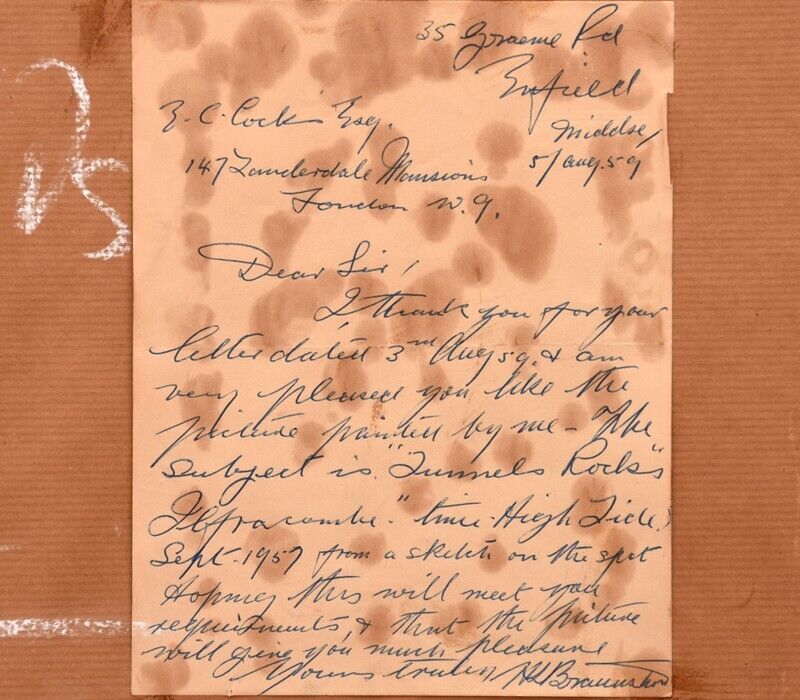 35 Graeme Rd
Enfield
Middsx,
5/Aug. 59
E. C. Cock Esq.
147 Lauderdale Mansions
London W. 9.
Dear Sir,
I thank you for your
letter dated 3rd Aug 59. & am
very pleased you like the
picture painted by me - The
subject is "Tunnels Rocks"
Ilfracombe." time - High Tide.
Sept. 1957 from a sketch on the spot
Hoping this will meet your
requirements, & that the picture
will give you much pleasure
Yours truly